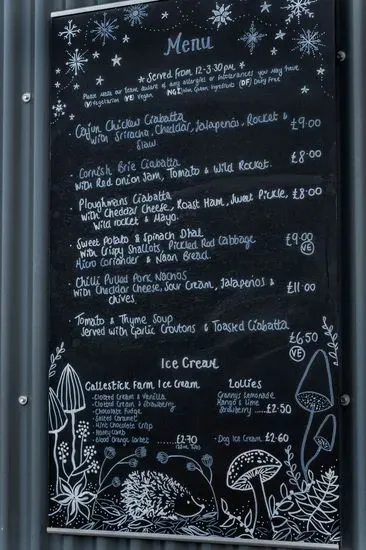 Menu
* Served from 12-3.30pm *
Please make our team aware of any allergies or intolerances you may have
(V) Vegetarian (VE) Vegan (NGI) Non Gluten Ingredients (DF) Dairy Free
· Cajun Chicken Ciabatta
with Sriracha, Cheddar, Jalapeños, Rocket & £9.00
Slaw
· Cornish Brie Ciabatta £8.00
with Red onion Jam, Tomato & Wild Rocket.
· Ploughmans Ciabatta
with Cheddar Cheese, Roast Ham, Sweet Pickle, £8.00
Wild rocket & Mayo.
· Sweet Potato & Spinach Dhal £9.00
with Crispy Shallots, Pickled Red Cabbage (VE)
Micro Coriander & Naan Bread.
· Chilli Pulled Pork Nachos
with Cheddar Cheese, Sour Cream, Jalapeños & £11.00
Chives.
· Tomato & Thyme Soup £6.50
Served with Garlic Croutons & Toasted Ciabatta (VE)
Ice Cream
Callestick Farm Ice Cream
- Clotted Cream & Vanilla
- Clotted Cream & Strawberry
- Chocolate Fudge
- Salted Caramel
- Mint Chocolate Chip
- Honey Comb
- Blood Orange Sorbet ...... £2.70
Lollies
Granny's Lemonade
Mango & Lime
Strawberry ...... £2.50
- Dog Ice Cream £2.60